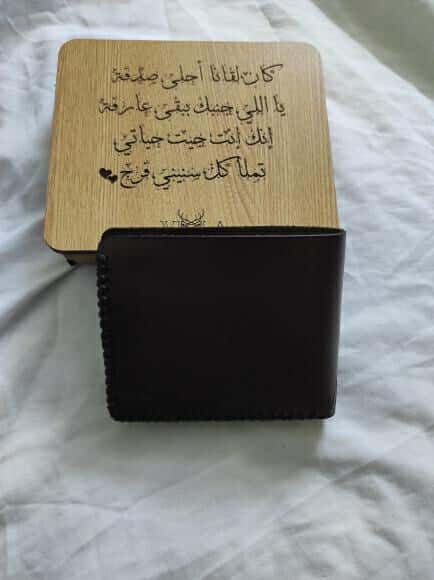 كان لقانا أحلى صدفة
يا اللي جنبك ببقى عارفة
إنك إنت جيت حياتي
تملا كل سنيني فرح